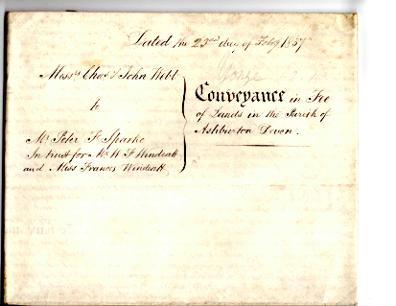 Dated the 23rd day of Feby 1857
Yonge
Messrs Chas & John Webb
to
Mr Peter F Sparke
In trust for Mr W F Windeatt
and Miss Frances Windeatt
Conveyance in Fee
of Lands in the Parish of
Ashburton Devon.